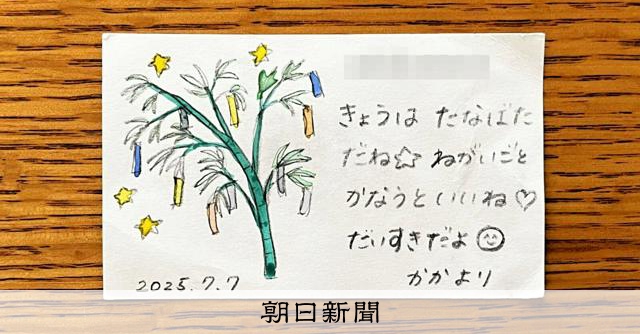 きょうは たなばた
だね☆ ねがいごと
かなうといいね♡
だいすきだよ☺
かかより
2025.7.7
朝日新聞